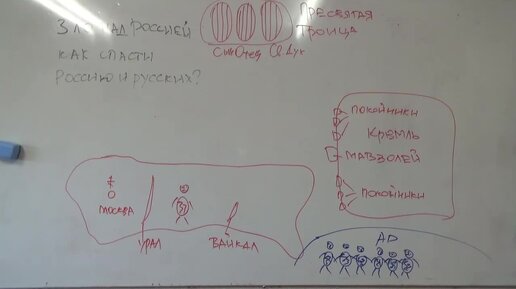 ЗЛО НАД РОССИЕЙ
КАК СПАСТИ
РОССИЮ И РУССКИХ?
ПРЕСВЯТАЯ
ТРОИЦА
СЫН ОТЕЦ СВ. ДУХ
ПОКОЙНИКИ
КРЕМЛЬ
МАВЗОЛЕЙ
ПОКОЙНИКИ
МОСКВА
УРАЛ
БАЙКАЛ
АД